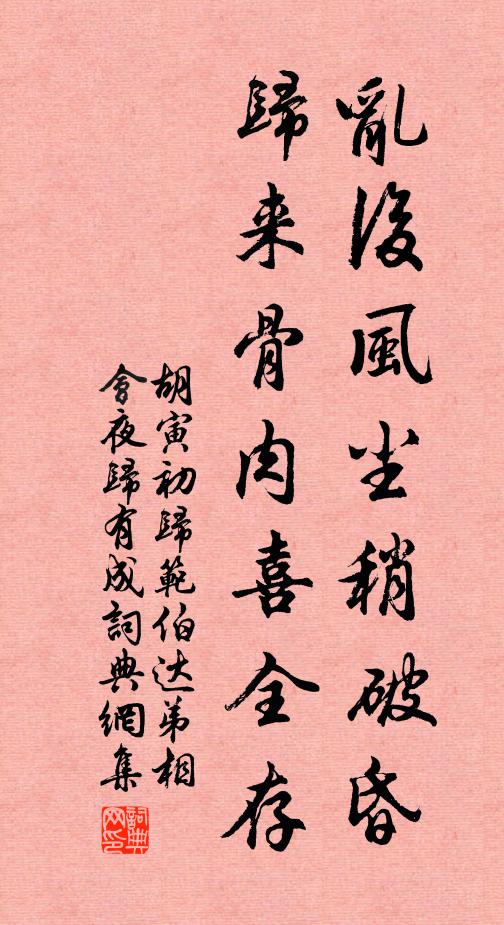 亂後風尘稍破昏
歸来骨肉喜全存
胡寅初歸範伯达弟相
會夜歸有成詞典網集
詞典
网印